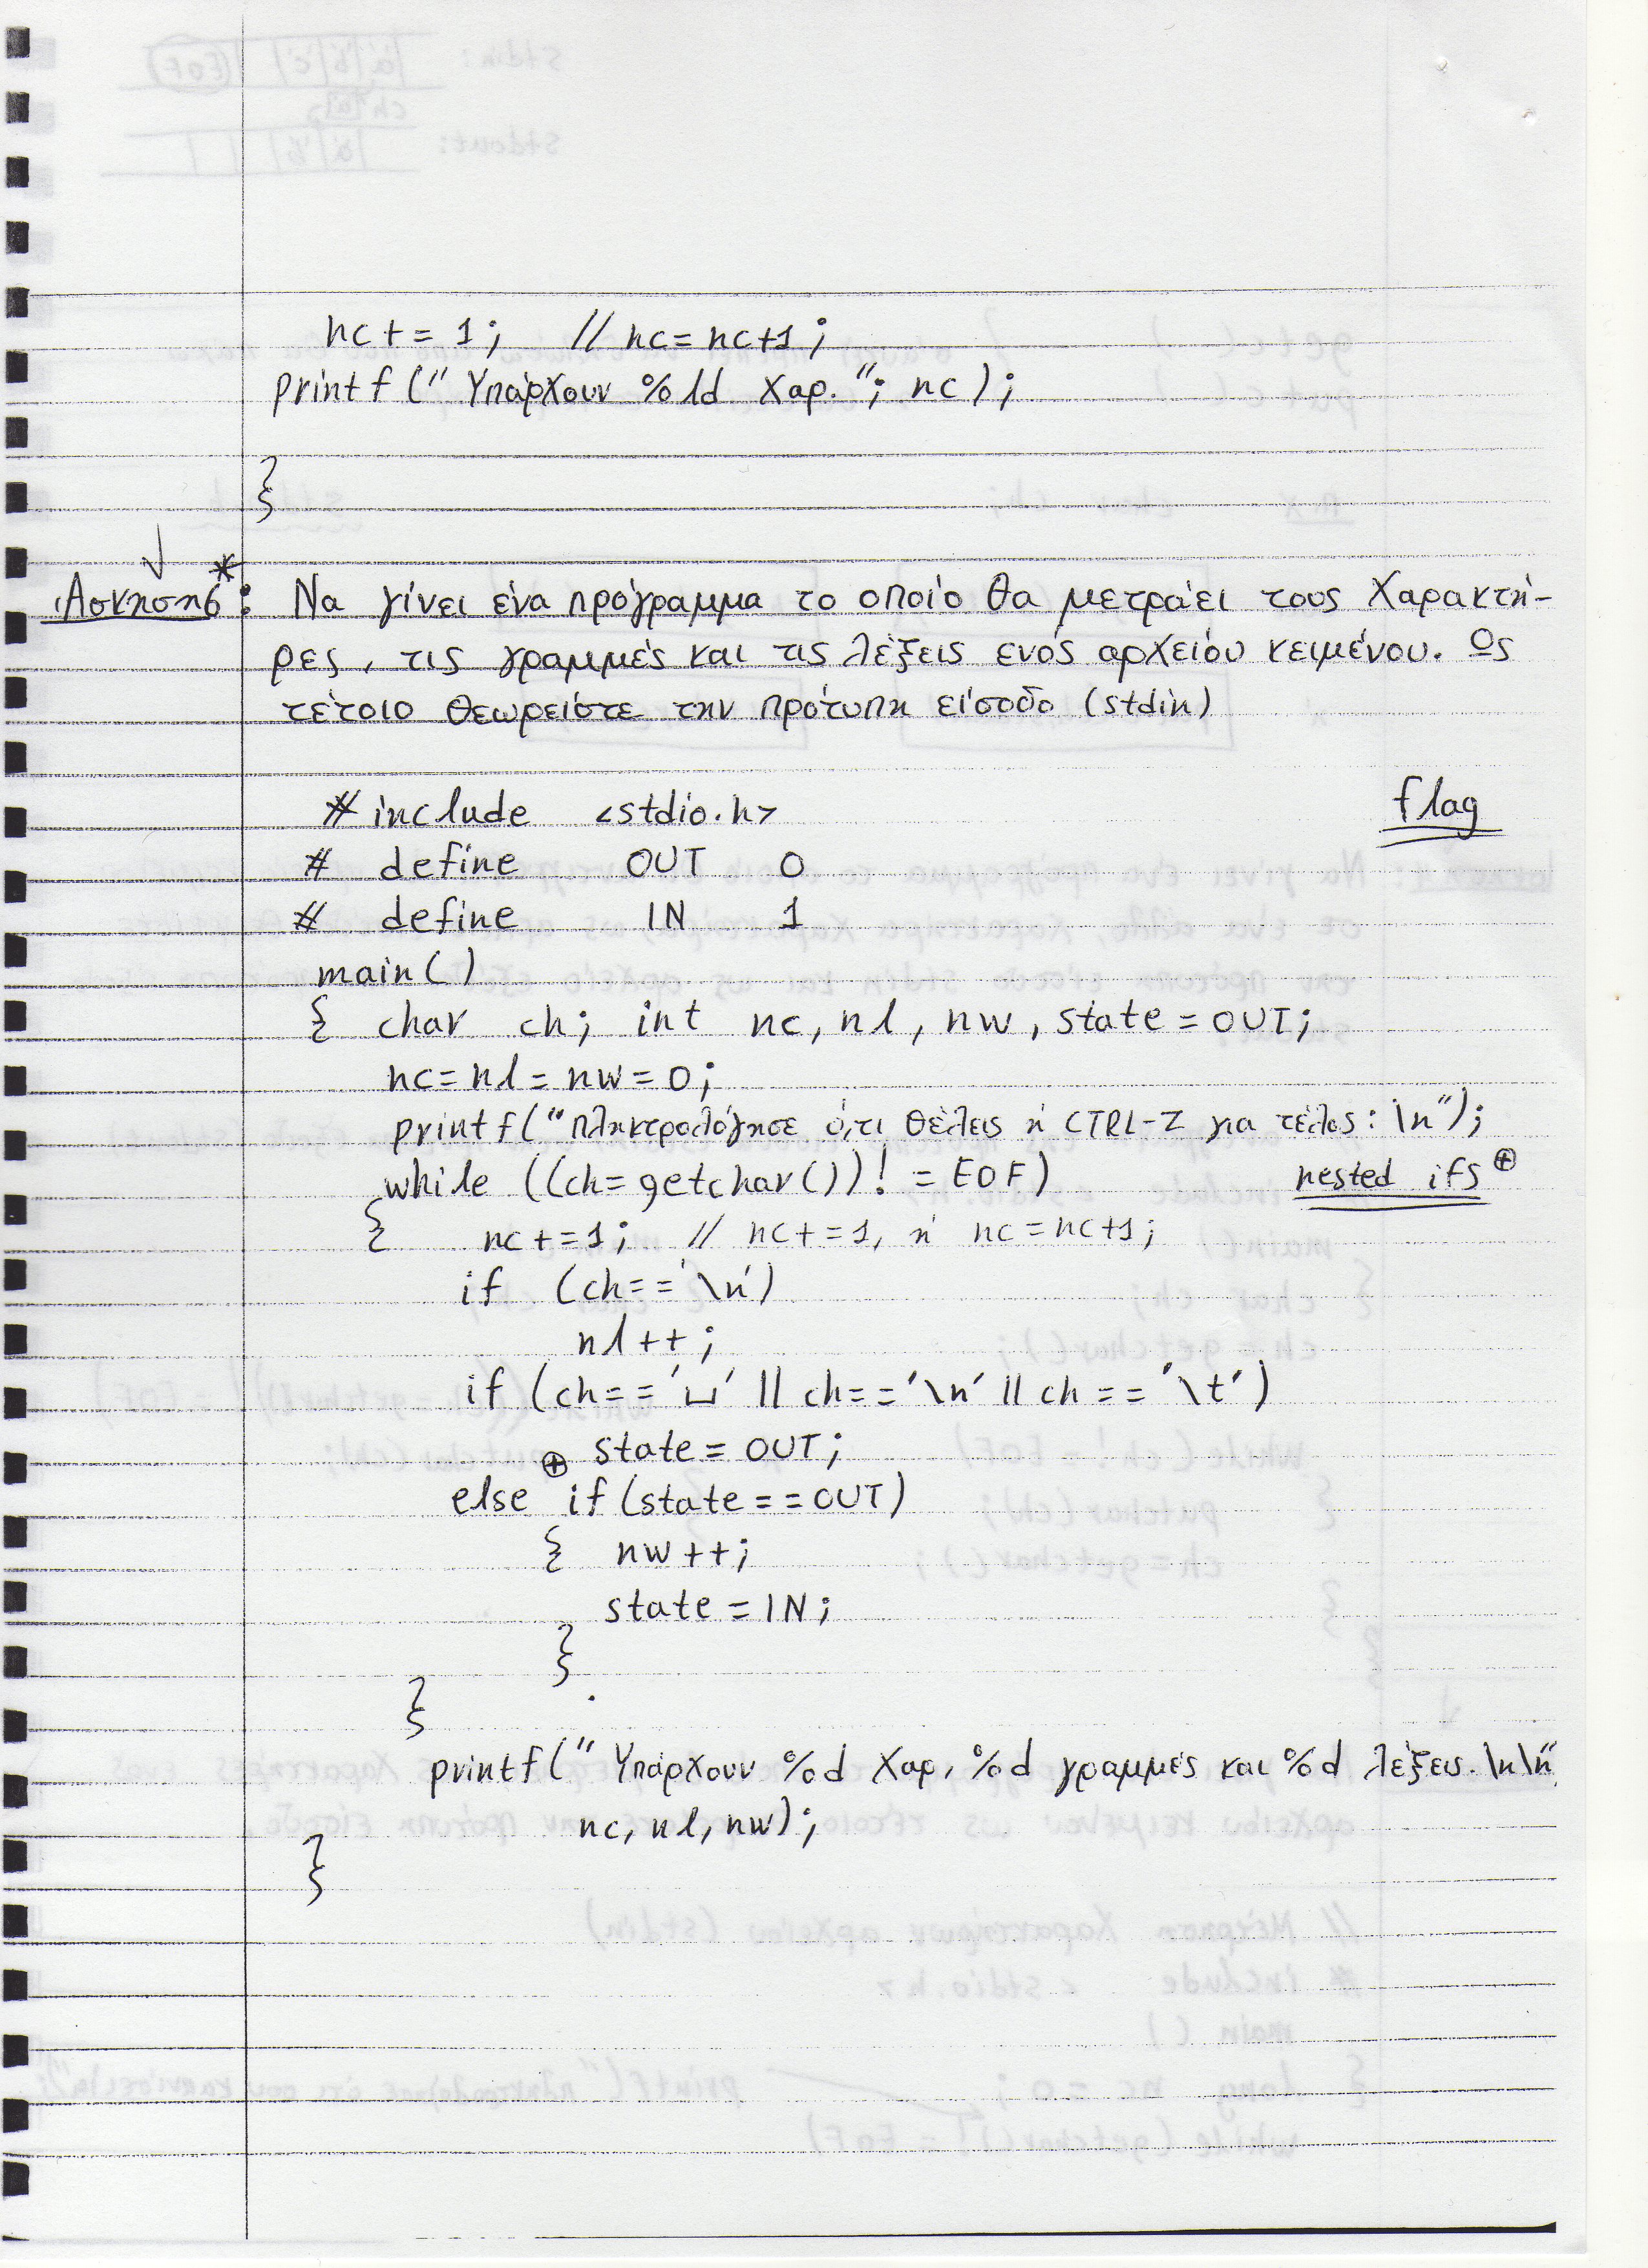 nc+=1; // nc=nc+1;
printf("Υπάρχουν %ld χαρ."; nc);
}
Άσκηση 6*: Να γίνει ένα πρόγραμμα το οποίο θα μετράει τους χαρακτή-
ρες, τις γραμμές και τις λέξεις ενός αρχείου κειμένου. Ως
τέτοιο θεωρείστε την πρότυπη είσοδο (stdin)
# include <stdio.h> flag
# define OUT 0
# define IN 1
main()
{ char ch; int nc, nl, nw, state=OUT;
nc=nl=nw=0;
printf("Πληκτρολόγησε ό,τι θέλεις ή CTRL-Z για τέλος: \n");
while ((ch=getchar())!=EOF) nested ifs ⊕
{ nc+=1; // nc+=1, ή nc=nc+1;
if (ch=='\n')
nl++;
if (ch=='␣' || ch=='\n' || ch=='\t')
state=OUT;
else ⊕ if (state==OUT)
{ nw++;
state=IN;
}
}
printf("Υπάρχουν %d χαρ, %d γραμμές και %d λέξεις.\n\n",
nc, nl, nw);
}